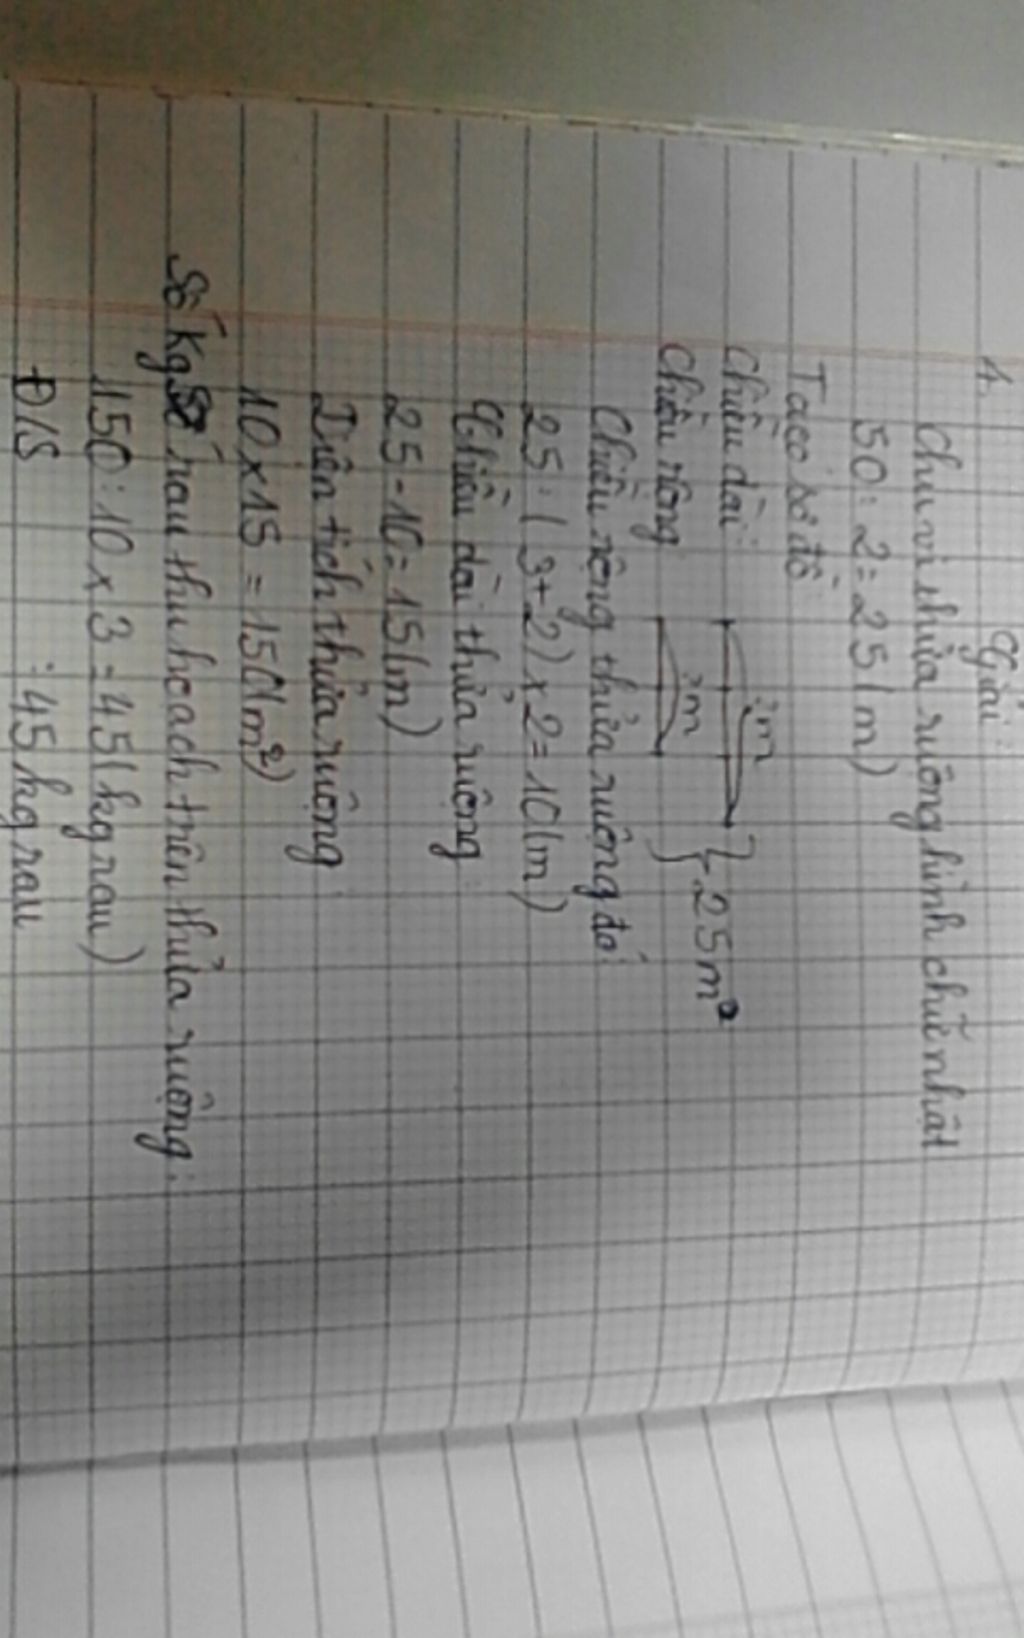 4. Giải:
Chu vi thửa ruộng hình chữ nhật
50: 2 = 25 (m)
Ta có sơ đồ
Chiều dài: ?m
Chiều rộng ?m } 25 m²
Chiều rộng thửa ruộng đó:
25 : ( 3+2) x 2 = 10 (m)
Chiều dài thửa ruộng:
25 - 10 = 15 (m)
Diện tích thửa ruộng:
10 x 15 = 150 (m²)
Số kg rau thu hoạch trên thửa ruộng:
150 : 10 x 3 = 45 ( kg rau)
Đ/S : 45 kg rau